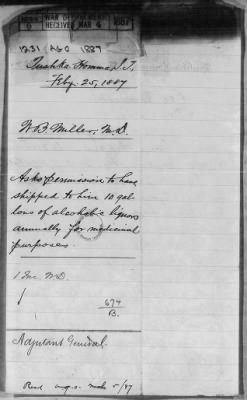 WAR DEPARTMENT
RECEIVED MAR 4 1887
1231 AGO 1887
Tushka Homma, I.T.,
Feby. 25, 1887
W.B. Miller, M.D.
Asks permission to have
shipped to him 10 gal-
lons of alcoholic liquors
annually for medicinal
purposes.
1 Inc. W.D.
674
B.
Adjutant General.
Recd A.G.O. Mch 5/87